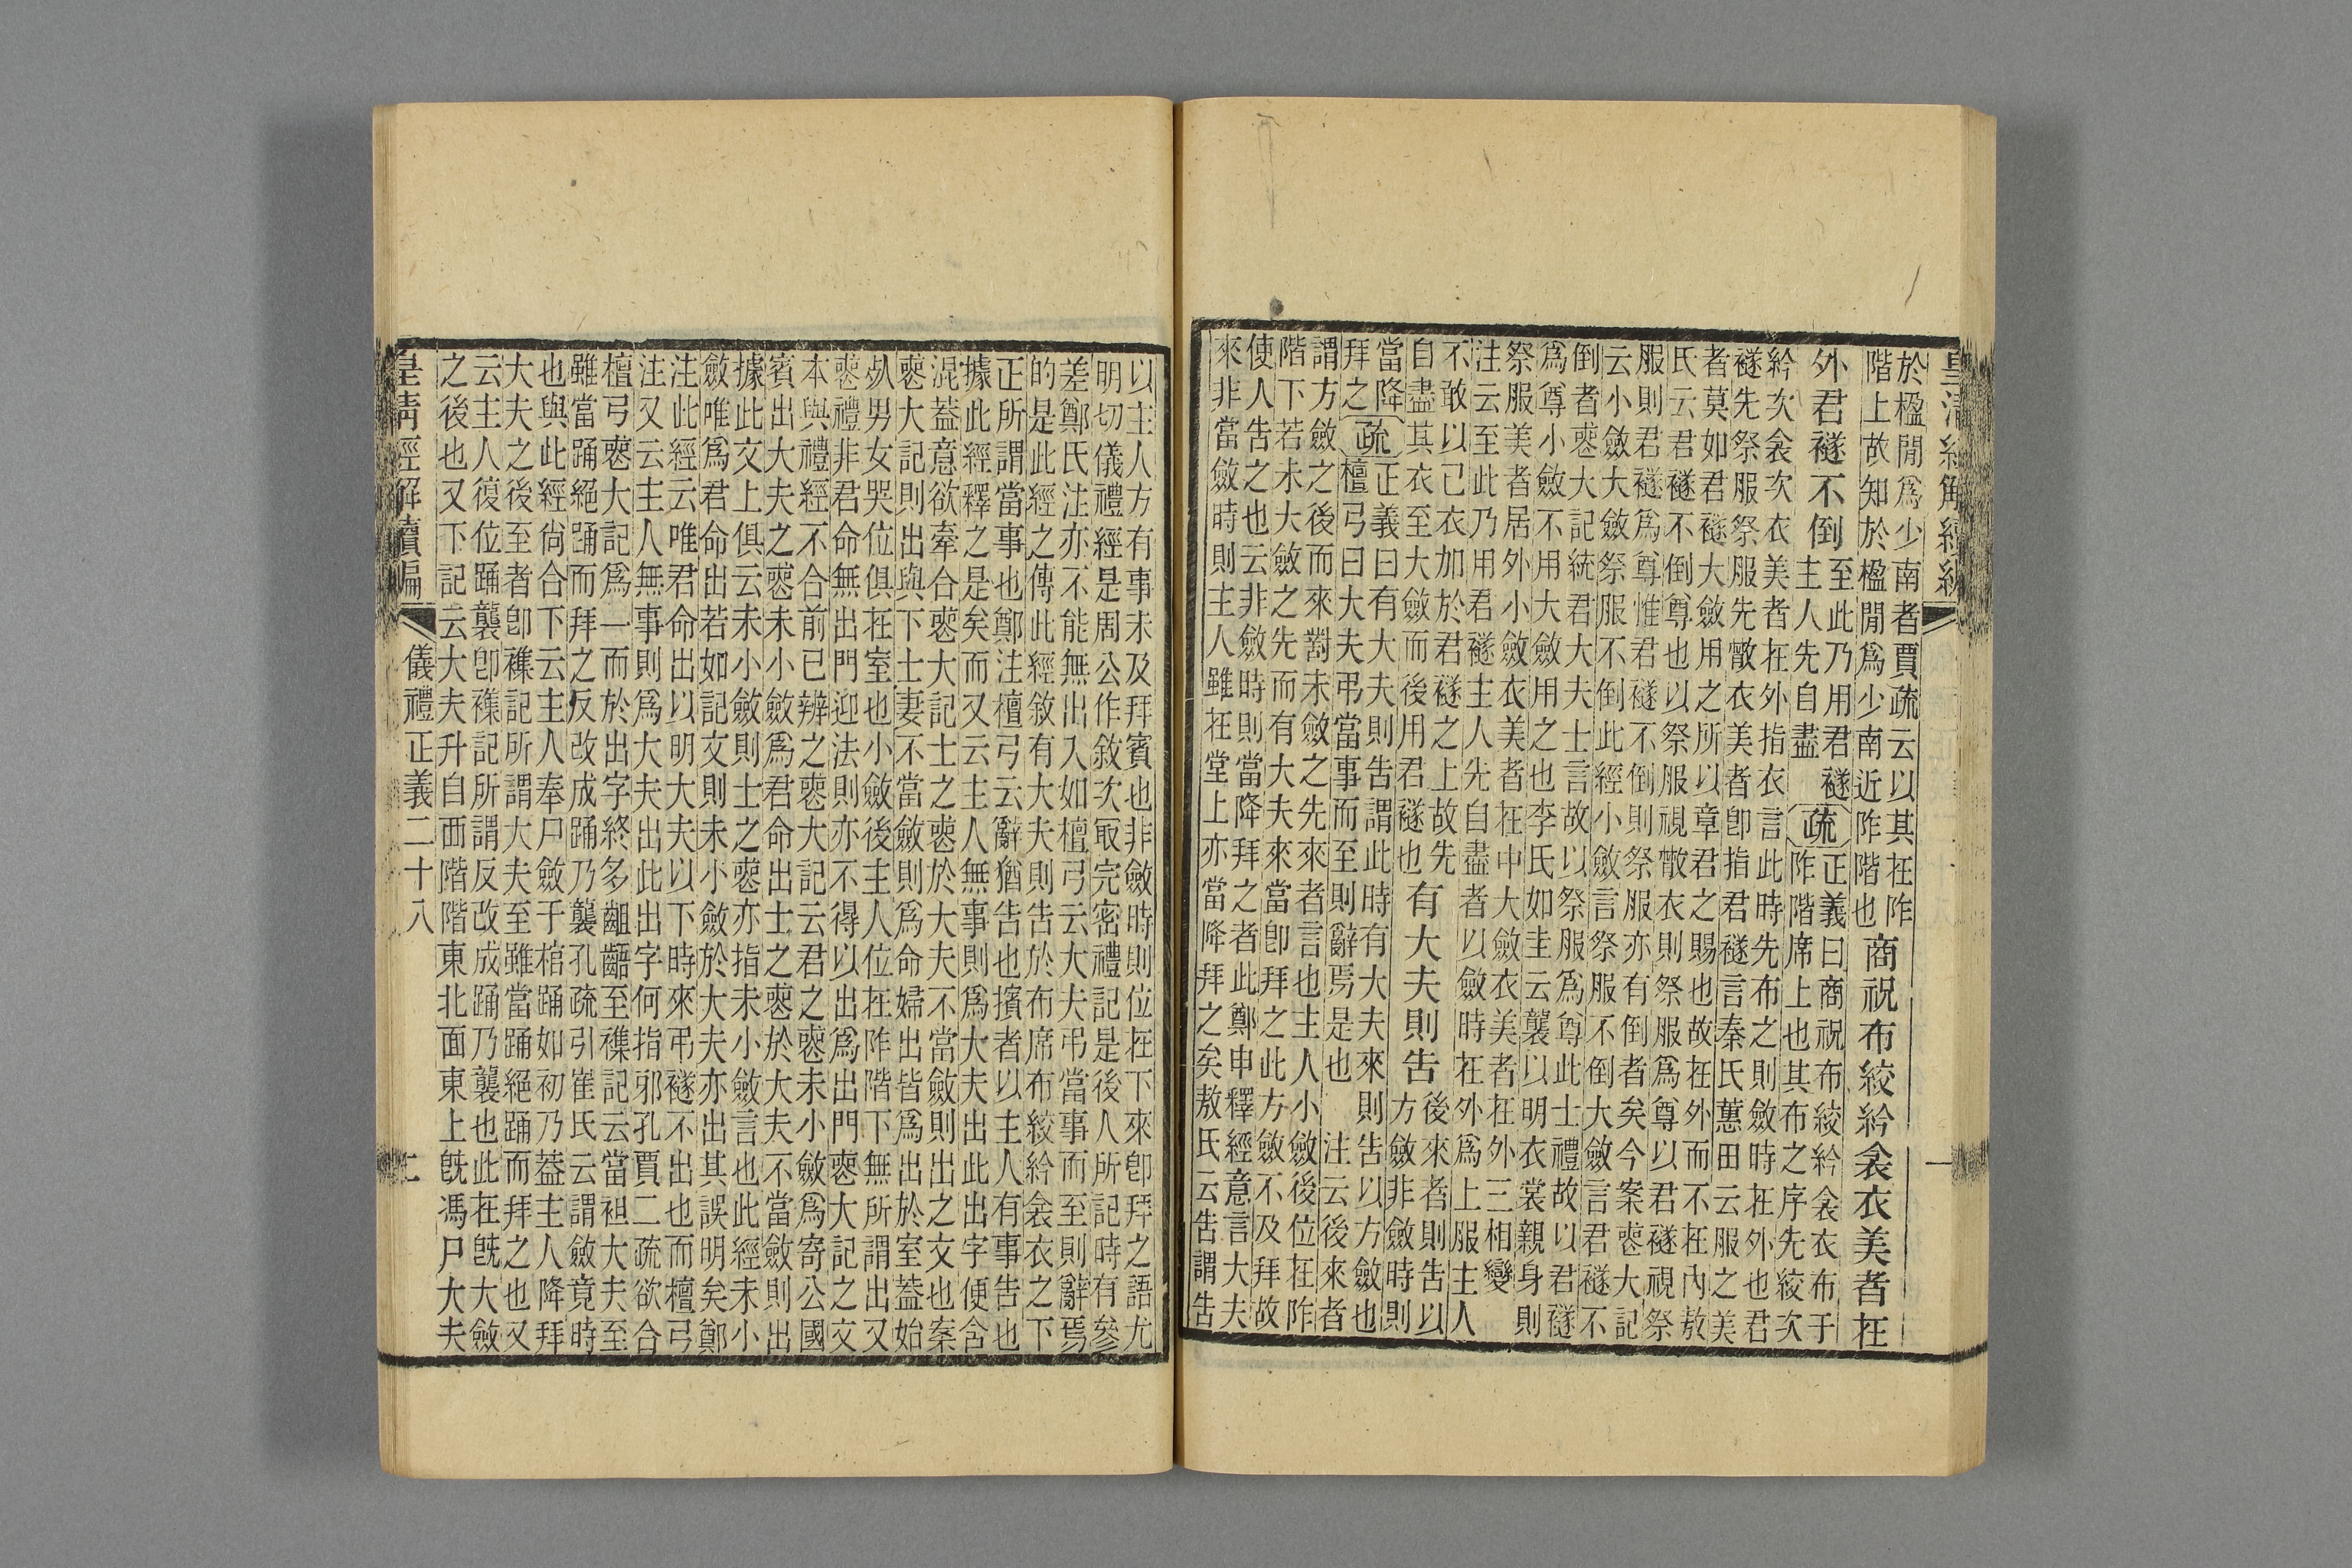 皇清經解續編
於楹閒爲少南者賈疏云以其在阼
階上故知於楹閒爲少南近阼階也
商祝布絞紟衾衣美者在
外君襚不倒
至此乃用君襚
主人先自盡
疏
正義曰商祝布絞紟衾衣布于
阼階席上也其布之序先絞次
紟次衾次衣美者在外指衣言此時先布之則斂時在外也君
襚先祭服祭服先散衣美者卽指君襚言秦氏蕙田云服之美
者莫如君襚大斂用之所以章君之賜也故在外而不在內敖
氏云君襚不倒尊也以祭服視散衣則祭服爲尊以君襚視祭
服則君襚爲尊惟君襚不倒則祭服亦有倒者矣今案喪大記
云小斂大斂祭服不倒此經小斂言祭服不倒大斂言君襚不
倒者喪大記統君大夫士言故以祭服爲尊此士禮故以君襚
爲尊小斂不用大斂用之也李氏如圭云襲以明衣裳親身則
祭服美者居外小斂衣美者在中大斂衣美者在外三相變
注云至此乃用君襚主人先自盡者以斂時在外爲上服主人
不敢以已衣加於君襚之上故先
自盡其衣至大斂而後用君襚也
有大夫則告
後來者則告以
方斂非斂時則
當降
拜之
疏
正義曰有大夫則告謂此時有大夫來則告以方斂也
檀弓曰大夫弔當事而至則辭焉是也 注云後來者
謂方斂之後而來對未斂之先來者言也主人小斂後位在阼
階下若未大斂之先而有大夫來當卽拜之此方斂不及拜故
使人告之也云非斂時則當降拜之者此鄭申釋經意言大夫
來非當斂時則主人雖在堂上亦當降拜之矣敖氏云告謂告
以主人方有事未及拜賓也非斂時則位在下來卽拜之語尤
明切儀禮經是周公作敘次最完密禮記是後人所記時有參
差鄭氏注亦不能無出入如檀弓云大夫弔當事而至則辭焉
的是此經之傳此經敘有大夫則告於布席布絞紟衾衣之下
正所謂當事也鄭注檀弓云辭猶告也擯者以主人有事告也
據此經釋之是矣而又云主人無事則爲大夫出此出字便含
混蓋意欲牽合喪大記士之喪於大夫不當斂則出之文也案
喪大記則出與下士妻不當斂則爲命婦出皆爲出於室蓋始
死男女哭位俱在室也小斂後主人位在阼階下無所謂出又
喪禮非君命無出門迎法則亦不得以出爲出門喪大記之文
本與禮經不合前已辨之喪大記云君之喪未小斂爲寄公國
賓出大夫之喪未小斂爲君命出士之喪於大夫不當斂則出
據此文上俱云未小斂則士之喪亦指未小斂言也此經未小
斂唯爲君命出若如記文則未小斂於大夫亦出其誤明矣鄭
注此經云唯君命出以明大夫以下時來弔襚不出也而檀弓
注又云主人無事則爲大夫出此出字何指邪孔賈二疏欲合
檀弓喪大記爲一而於出字終多齟齬至襍記云當袒大夫至
雖當踊絕踊而拜之反改成踊乃襲孔疏引崔氏云謂斂竟時
也與此經尙合下云主人奉尸斂于棺踊如初乃蓋主人降拜
大夫之後至者卽襍記所謂大夫至雖當踊絕踊而拜之也又
云主人復位踊襲卽襍記所謂反改成踊乃襲也此在旣大斂
之後也又下記云大夫升自西階階東北面東上旣馮尸大夫
皇清經解續編
儀禮正義二十八